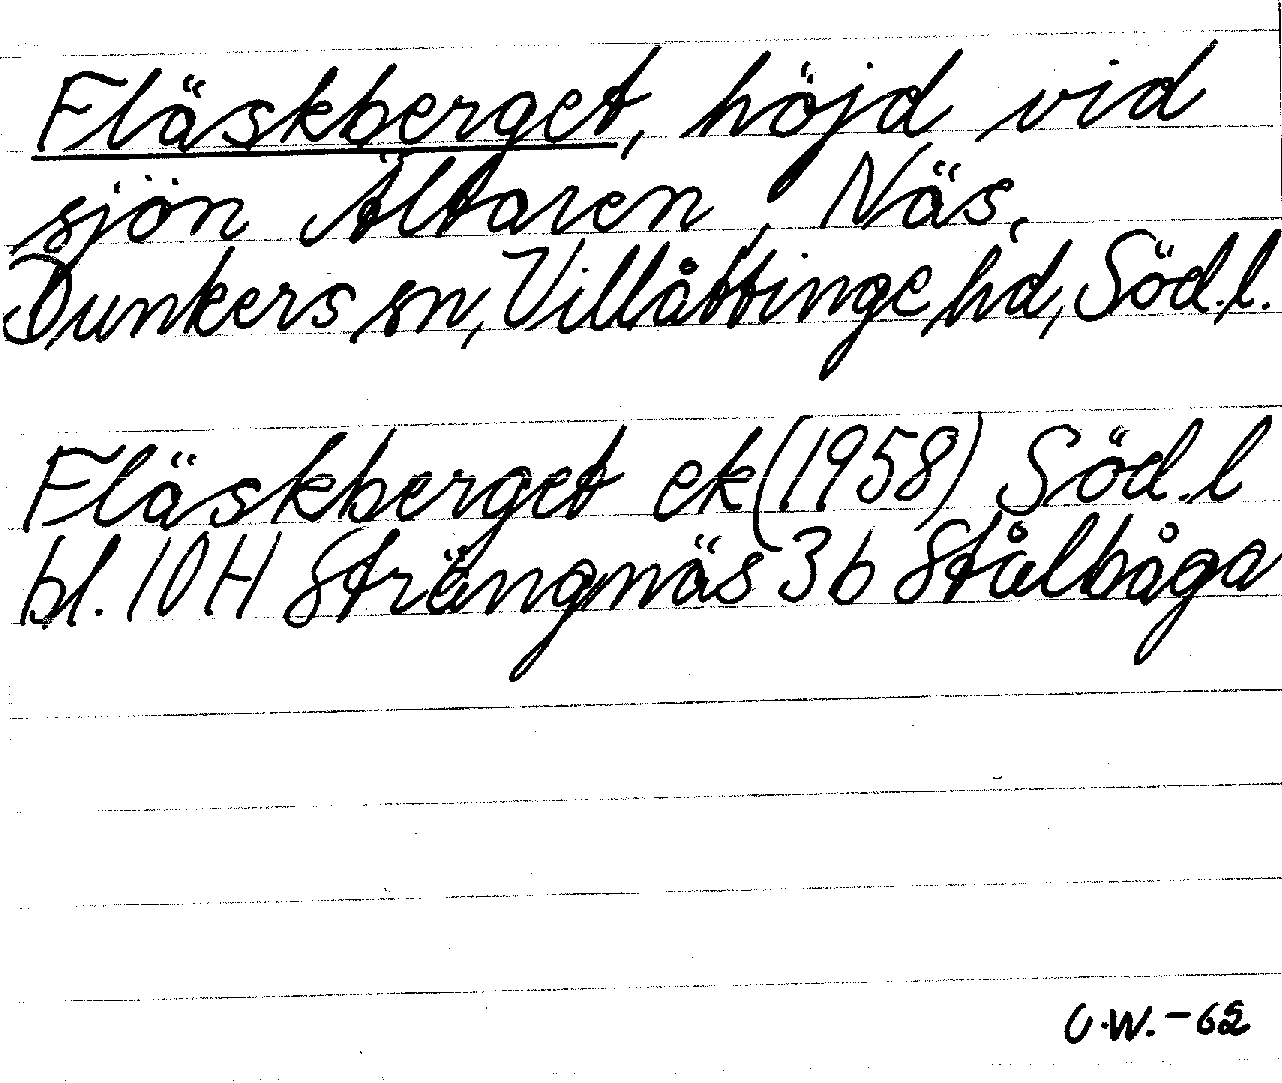 Fläskberget, höjd vid
sjön Ältaren, Näs,
Dunkers sn, Villåttinge hd, Söd.l.
Fläskberget ek (1958) Söd.l
bl. 10H Strängnäs 3b Stålbåga
C.W.-62